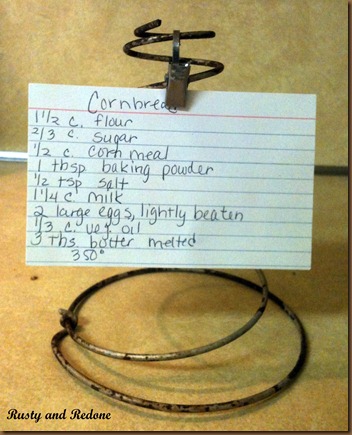 Cornbread
1 1/2 c. flour
2/3 c. sugar
1/2 c. corn meal
1 tbsp baking powder
1/2 tsp salt
1 1/4 c. milk
2 large eggs, lightly beaten
1/3 c. veg. oil
3 tbs butter melted
350°
Rusty and Redone